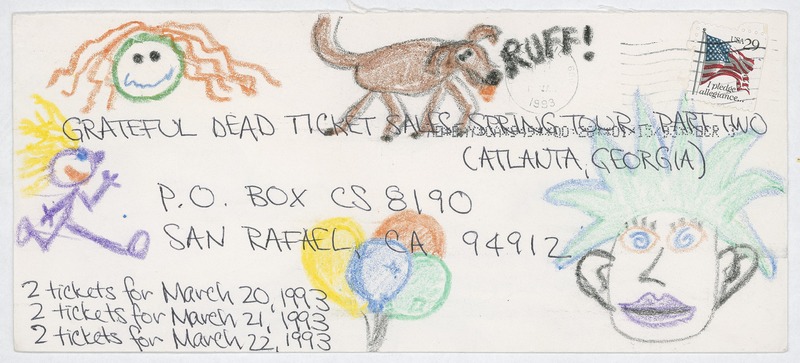 RUFF!
USA 29
I pledge
allegiance...
1993
GRATEFUL DEAD TICKET SALES, SPRING TOUR PART TWO
(ATLANTA, GEORGIA)
P.O. BOX CS 8190
SAN RAFAEL, CA 94912
2 tickets for March 20, 1993
2 tickets for March 21, 1993
2 tickets for March 22, 1993